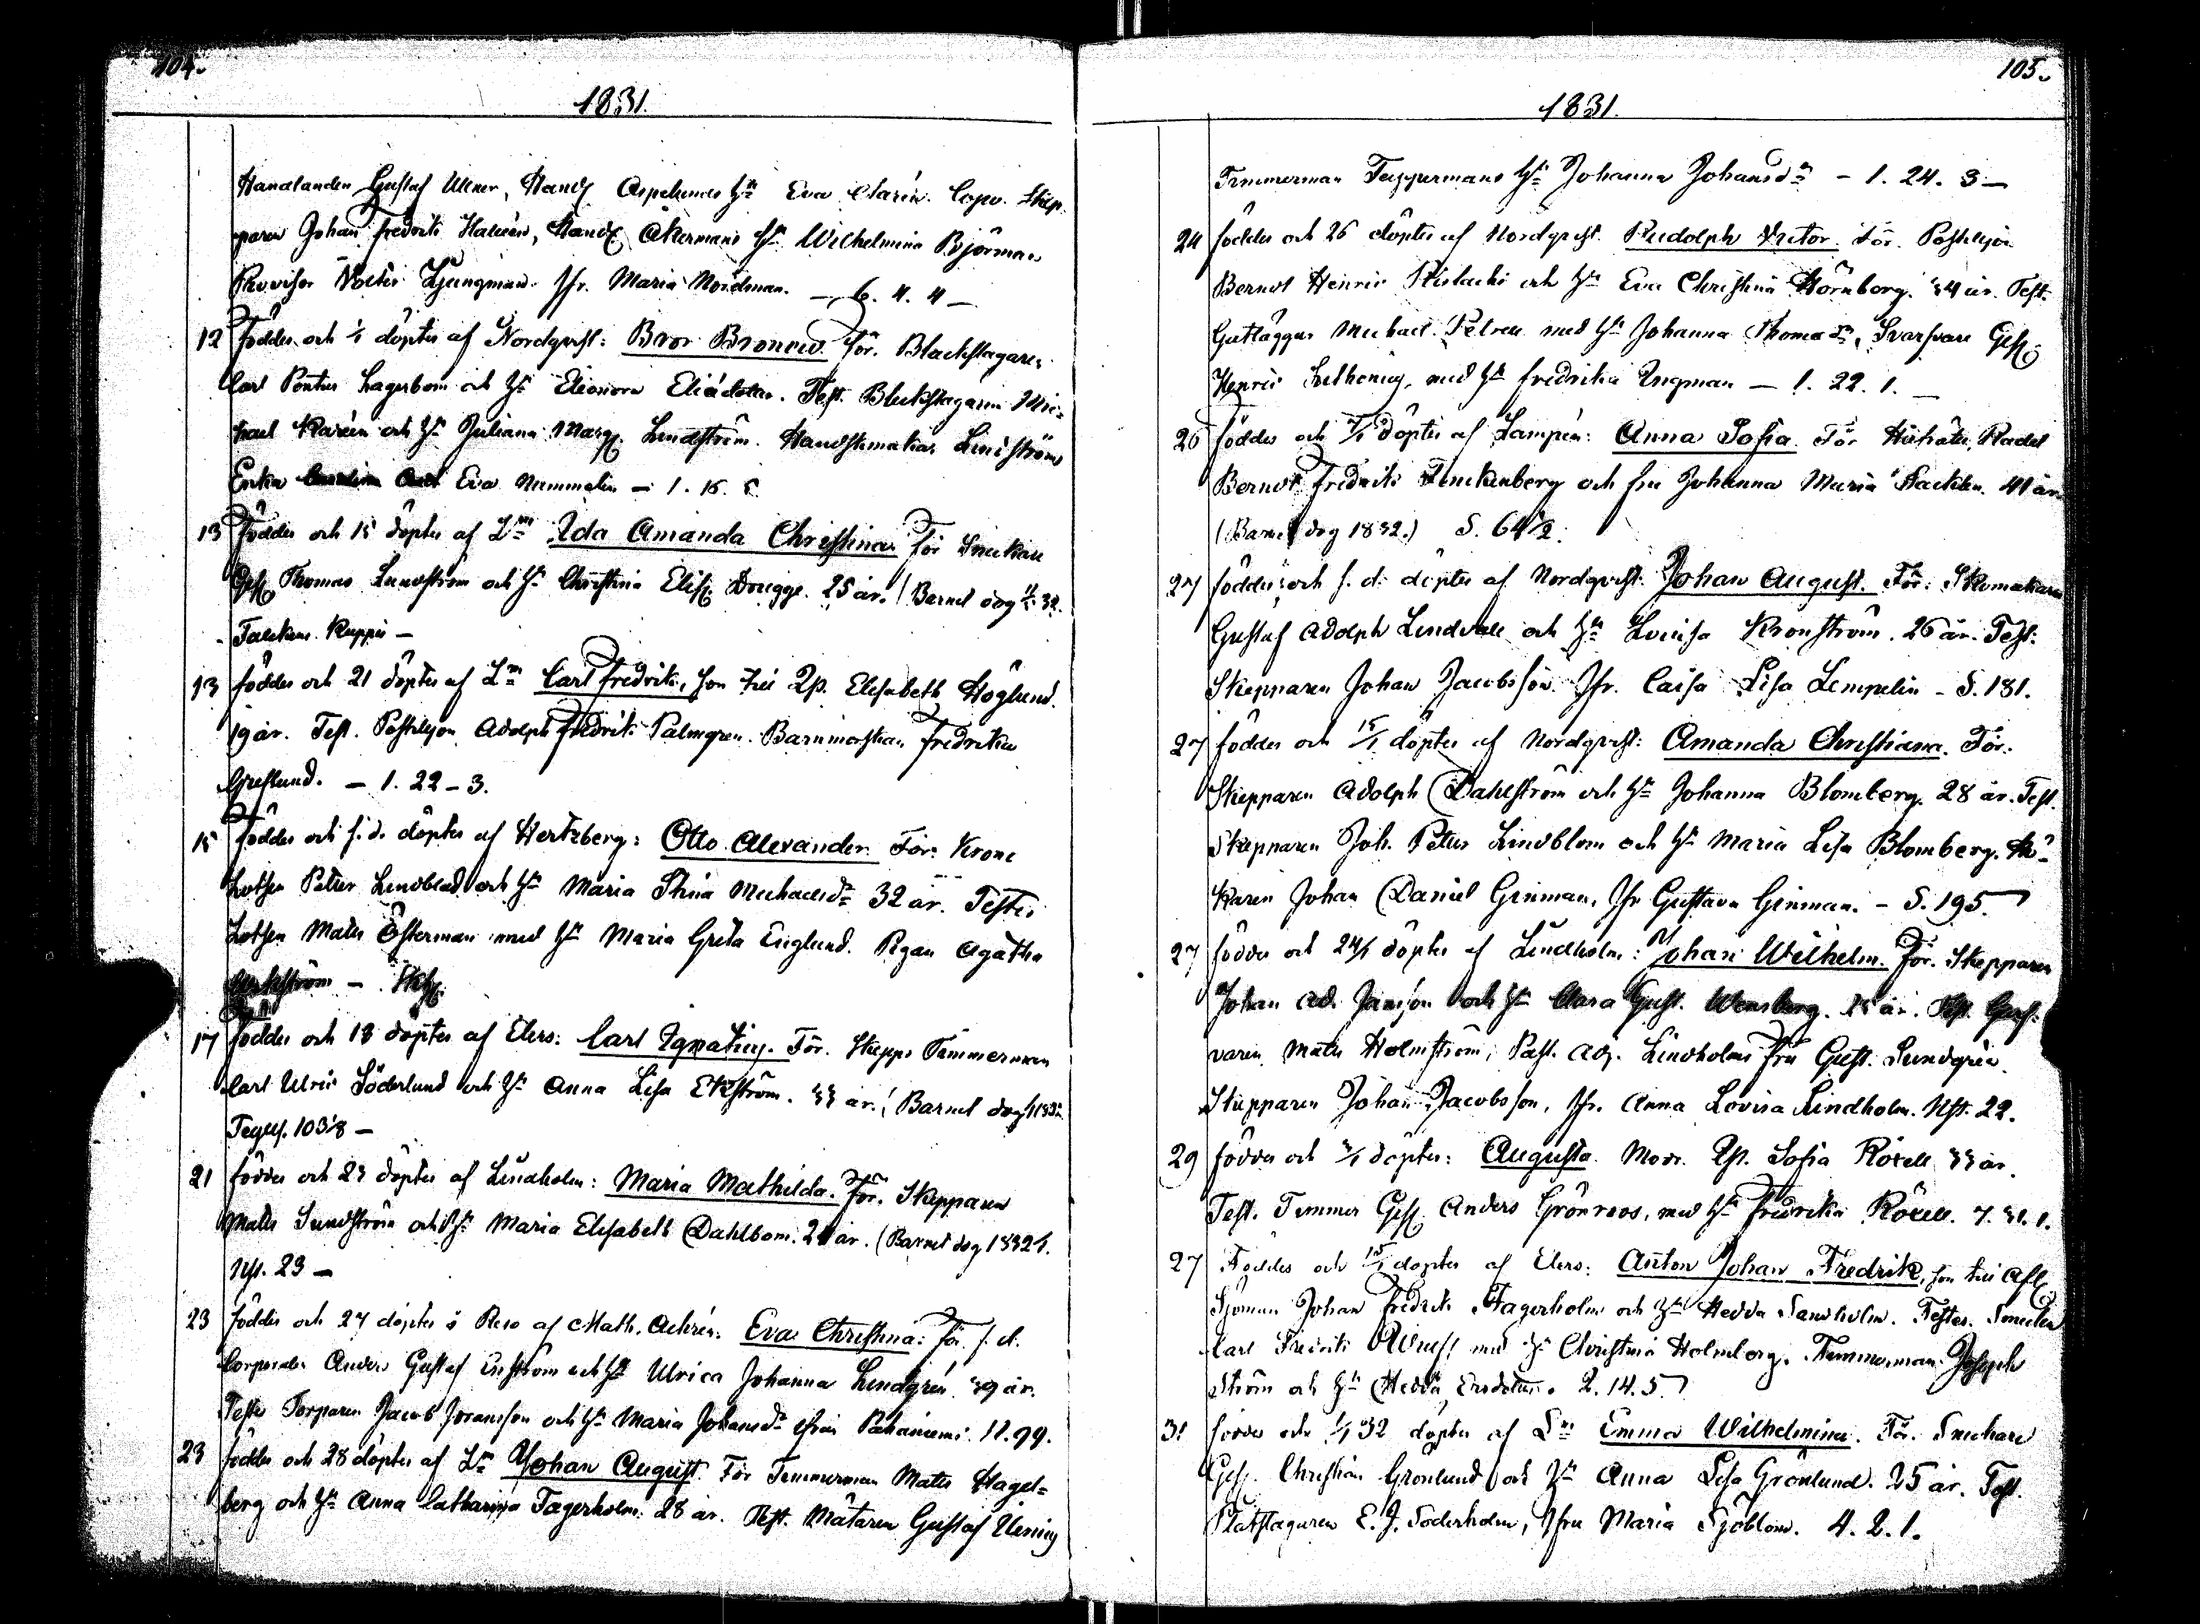 104.
1831.
Handlanden Gustaf Ulner, Handl. Aspelunds H:u Eva Clarén. Copv. Skep-
paren Johan Fredrik Halléen, Handl. Åkermans H:u Wilhelmina Björman
Provisor Ljungman. Jfr. Maria Nordman. — 6. 4. 4 —
12 föddes och 1/1 döptes af Nordqvist: Bror Bronow. För. Blackslagaren
Carl Pontus Lagerbom och H:u Eleonora Eliædotter. Test. Bleckslagaren Mic-
hael Karéen och H:u Juliana Marg. Lindström. Handskmakar Lindströms
Enka Eva Nummelin — 1. 15.
13 föddes och 15 döptes af L:m Ida Amanda Christina För Snickare
Ges. Thomas Lundström och H:u Christina Elis. Dregge. 25 år. (Barnet dog 32.
13 föddes och 21 döptes af L:m Carl Fredrik, son till Qp. Elisabeth Höglund.
19 år. Test. Postiljon Adolph Fredrik Palmgren. Barnmorskan Fredrika
— 1. 22 – 3.
15 föddes och s. d. döptes af Hertzberg: Otto Alexander. För. Krono
Lotsen Petter Lindblad och H:u Maria Stina Michaelsd:r 32 år. Testes
Lotsen Matts Österman med H:u Maria Greta Englund. Pigan Agatha
17 föddes och 18 döptes af Elers: Carl Ignatius. För. Skepps Timmerman
Carl Ulric Söderlund och H:u Anna Lisa Ekström. 33 år. (Barnet dog 1832.
Tegels. 103½ —
21 föddes och 23 döptes af Lindholm: Maria Mathilda. För. Skepparen
Matts Sundström och H:u Maria Elisabeth Dahlbom. 21 år. (Barnet dog 1832
Nyst. 23 —
23 föddes och 27 döptes i Reso af Math. Achrén: Eva Christina. För. f. d.
Corporalen Anders Gustaf Enström och H:u Ulrica Johanna Lindgren. 39 år.
Testes Torparen Jacob Joransson och H:u Maria Johansd:r från Pahaniemi. 11. 99.
23 föddes och 28 döptes af L:m Johan August. För Timmerman Matts Hagel-
berg och H:u Anna Catharina Fagerholm. 28 år. Test. Mätaren Gustaf
105.
1831.
Timmerman Tappermans H:u Johanna Johansd:r – 1. 24. 3 —
24 föddes och 26 döptes af Nordqvist. Rudolph Victor. För. Postiljon
Berndt Henric och H:u Eva Christina Hörnborg. 34 år. Test.
Gatläggar Michael Petrell med H:u Johanna Thomasd:r, Svarfvare Ges.
Henric med H:u Fredrika Ingman — 1. 22. 1.
26 föddes och 7/1 döptes af Lampén: Anna Sofia. För Hofråts Rådet
Berndt Fredrik Munckenberg och fru Johanna Maria Stackelberg. 41 år
(Barnet dog 1832.) S. 64½.
27 föddes och s. d. döptes af Nordqvist. Johan August. För: Skomakaren
Gustaf Adolph Lindvall och H:u Lovisa Kronström. 26 år. Test:
Skepparen Johan Jacobsson. Jfr. Caisa Lisa Lempelin – S. 181.
27 föddes och 15/1 döptes af Nordqvist: Amanda Christiana. För.
Skepparen Adolph Dahlström och H:u Johanna Blomberg. 28 år. Test.
Skepparen Joh. Petter Lindblom och H:u Maria Lisa Blomberg.
Johan Daniel Ginman, Jfr Gustava Ginman. – S. 195.
27 föddes och 24/1 döptes af Lindholm: Johan Wilhelm. För. Skepparen
Johan Ad. Jansson och H:u Clara Gust. Wensberg. 25 år. Test.
Matts Holmström, Past. Adj. Lindholms fru Gust. Lundgrén.
Skepparen Johan Jacobsson, Jfr. Anna Lovisa Lindholm. Nyst. 22.
29 föddes och döptes: Augusta. Modr. Qp. Sofia Röxell 33 år.
Test. Timmer Ges. Anders Grönroos, med H:u Fredrika Röxell. 7. 31. 1.
27 Föddes och 15/1 döptes af Elers: Anton Johan Fredrik, son till Afl.
Sjöman Johan Fredrik Fagerholm och H:u Hedda Sandholm. Testes. Smeden
Carl Fredrik med H:u Christina Holmberg. Timmerman Joseph
Ström och H:u Hedda Ersdotter. 2. 14. 5.
31 föddes och 1/1 32 döptes af L:m Emma Wilhelmina. För. Snickare
Ges. Christian Grönlund och H:u Anna Lisa Grönlund. 25 år. Test.
Plåtslagaren E. J. Söderholm, Jfru Maria Sjöblom. 4. 2. 1.